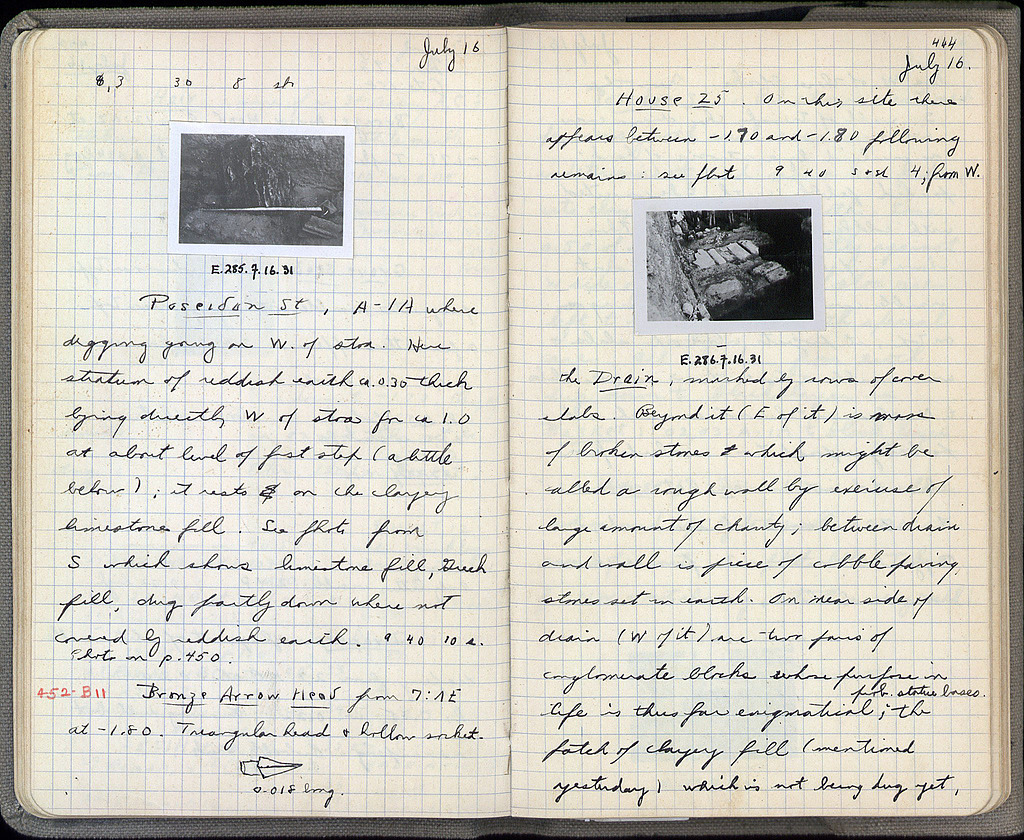 July 16
8,3 30 8 sh
E.285.7.16.31
Poseidon St, A-1A where
digging going on W. of stoa. Here
stratum of reddish earth ca. 0.35 thick
lying directly W of stoa for ca 1.0
at about level of first step (a little
below); it rests on the clayey
limestone fill. See photo from
S which shows limestone fill, Greek
fill, dug partly down where not
covered by reddish earth. 9 40 10 s.
Photo on p. 450.
452-B11 Bronze Arrow Head from 7:1E
at -1.80. Triangular head & hollow socket.
0.018 long.
444
July 16.
House 25. On this site there
appears between -1.70 and -1.80 following
remains: see phot 9 40 4; from W.
E.286.7.16.31
the Drain, marked by rows of cover
slabs. Beyond it (E of it) is mass
of broken stones which might be
called a rough wall by exercise of
large amount of charity; between drain
and wall is piece of cobble paving,
stones set in earth. On near side of
drain (W of it) are two pairs of
conglomerate blocks whose purpose in
prob. statue bases.
life is thus far enigmatical; the
patch of clayey fill (mentioned
yesterday) which is not being dug yet,